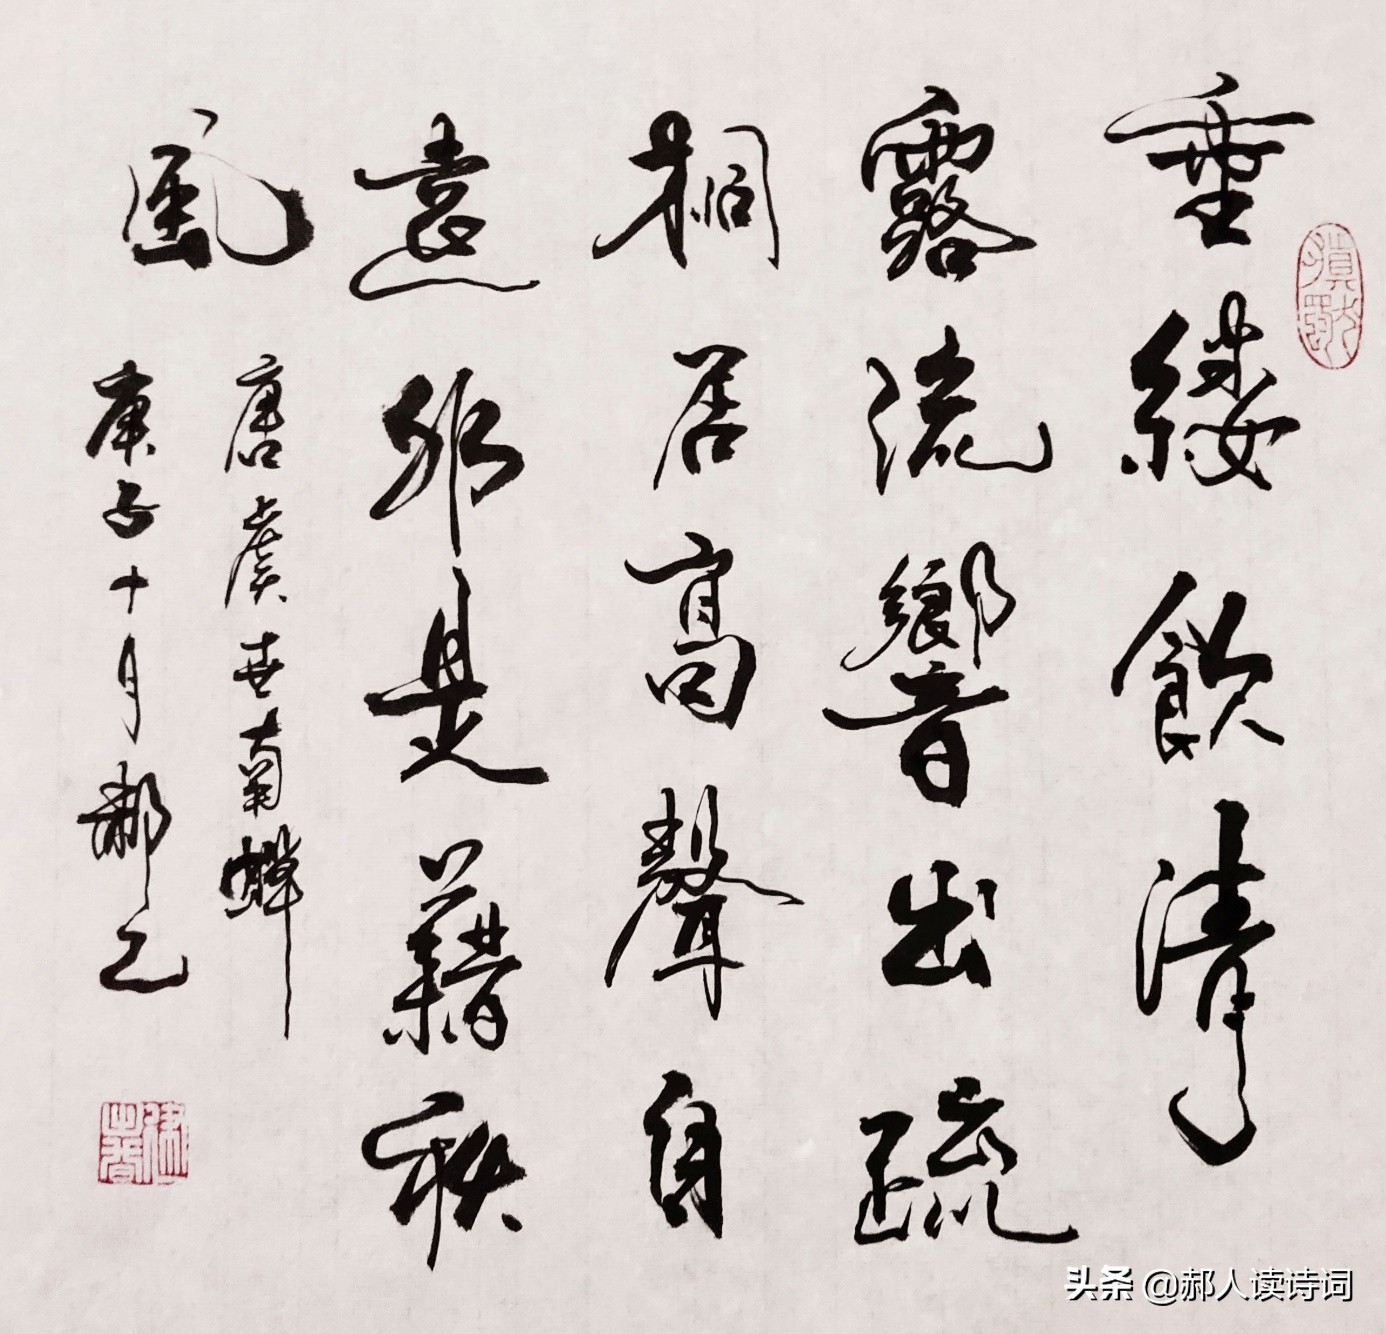 垂緌飲清
露流響出疏
桐居高聲自
遠非是藉秋
風
唐虞世南蟬
庚子十月郝乙
头条 @郝人读诗词